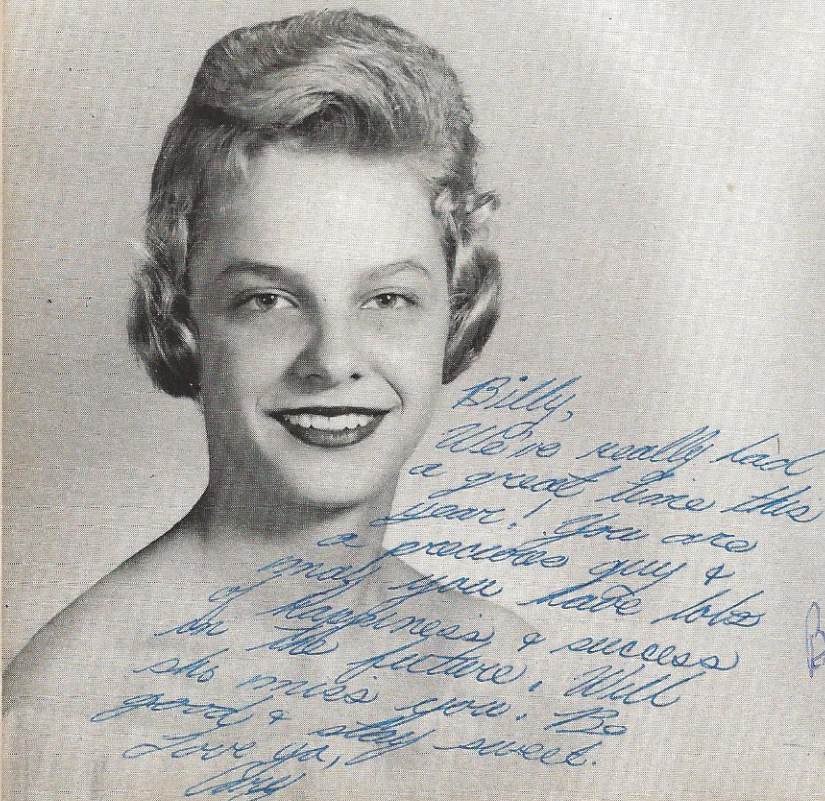 Billy,
We've really had
a great time this
year! You are
a precious guy &
may you have lots
of happiness & success
in the future. Will
sho miss you. Be
good & stay sweet.
Love ya,